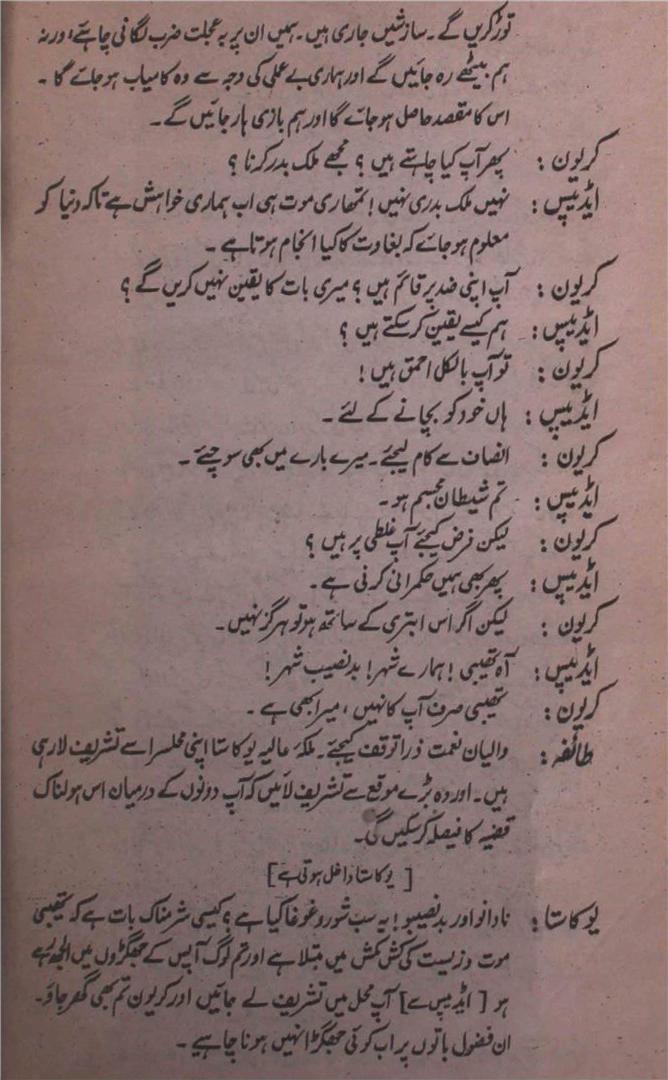 توڑ کریں گے۔ سازشیں جاری ہیں۔ ہمیں ان پر بہ عجلت ضرب لگانی چاہیے، ورنہ
ہم بیٹھے رہ جائیں گے اور ہماری بے عملی کی وجہ سے وہ کامیاب ہو جائے گا۔
اس کا مقصد حاصل ہو جائے گا اور ہم بازی ہار جائیں گے۔
کریون : پھر آپ کیا چاہتے ہیں؟ مجھے ملک بدر کرنا؟
ایڈیپس : نہیں ملک بدری نہیں! تمھاری موت ہی اب ہماری خواہش ہے تاکہ دنیا کو
معلوم ہو جائے کہ بغاوت کا کیا انجام ہوتا ہے۔
کریون : آپ اپنی ضد پر قائم ہیں؟ میری بات کا یقین نہیں کریں گے؟
ایڈیپس : ہم کیسے یقین کر سکتے ہیں؟
کریون : تو آپ بالکل احمق ہیں!
ایڈیپس : ہاں خود کو بچانے کے لئے۔
کریون : انصاف سے کام لیجئے۔ میرے بارے میں بھی سوچئے۔
ایڈیپس : تم شیطان مجسم ہو۔
کریون : لیکن فرض کیجئے آپ غلطی پر ہیں؟
ایڈیپس : پھر بھی ہمیں حکمرانی کرنی ہے۔
کریون : لیکن اگر اس ابتری کے ساتھ ہو تو ہرگز نہیں۔
ایڈیپس : آہ تھیبی! ہمارے شہر! بدنصیب شہر!
کریون : تھیبی صرف آپ کا نہیں، میرا بھی ہے۔
طائفہ : والیان نعمت ذرا توقف کیجئے۔ ملکۂ عالیہ یوکاستا اپنی محلسرا سے تشریف لا رہی
ہیں۔ اور وہ بڑے موقع سے تشریف لائیں کہ آپ دونوں کے درمیان اس ہولناک
قضیہ کا فیصلہ کر سکیں گی۔
[یوکاستا داخل ہوتی ہے]
یوکاستا : نادانو اور بدنصیبو! یہ سب شور و غوغا کیا ہے؟ کیسی شرمناک بات ہے کہ تھیبی
موت و زیست کی کش مکش میں مبتلا ہے اور تم لوگ آپس کے جھگڑوں میں الجھ رہے
ہو [ایڈیپس سے] آپ محل میں تشریف لے جائیں اور کریون تم بھی گھر جاؤ۔
ان فضول باتوں پر اب کوئی جھگڑا نہیں ہونا چاہیے۔